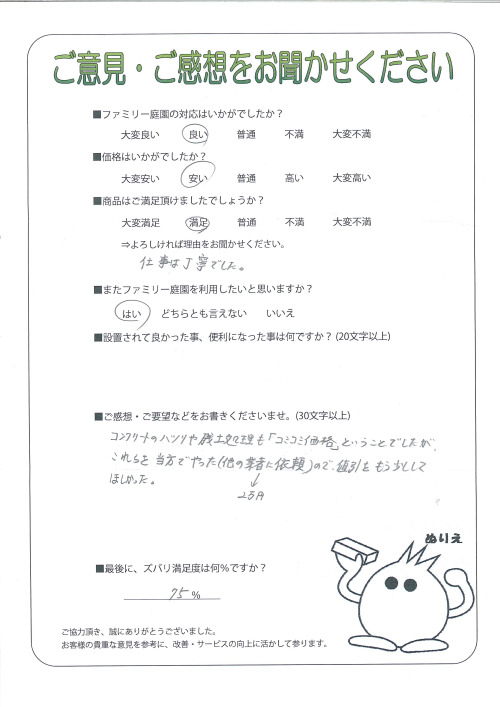 ご意見・ご感想をお聞かせください
■ファミリー庭園の対応はいかがでしたか？
大変良い 良い 普通 不満 大変不満
■価格はいかがでしたか？
大変安い 安い 普通 高い 大変高い
■商品はご満足頂けましたでしょうか？
大変満足 満足 普通 不満 大変不満
⇒よろしければ理由をお聞かせください。
仕事は丁寧でした。
■またファミリー庭園を利用したいと思いますか？
はい どちらとも言えない いいえ
■設置されて良かった事、便利になった事は何ですか？(20文字以上)
■ご感想・ご要望などをお書きくださいませ。(30文字以上)
コンクリートのハツリや残土処理も「コミコミ価格」ということでしたが、
これらを当方でやった(他の業者に依頼)ので、値引をもう少しして
ほしかった。
ぬりえ
■最後に、ズバリ満足度は何％ですか？
75 %
ご協力頂き、誠にありがとうございました。
お客様の貴重な意見を参考に、改善・サービスの向上に活かして参ります。